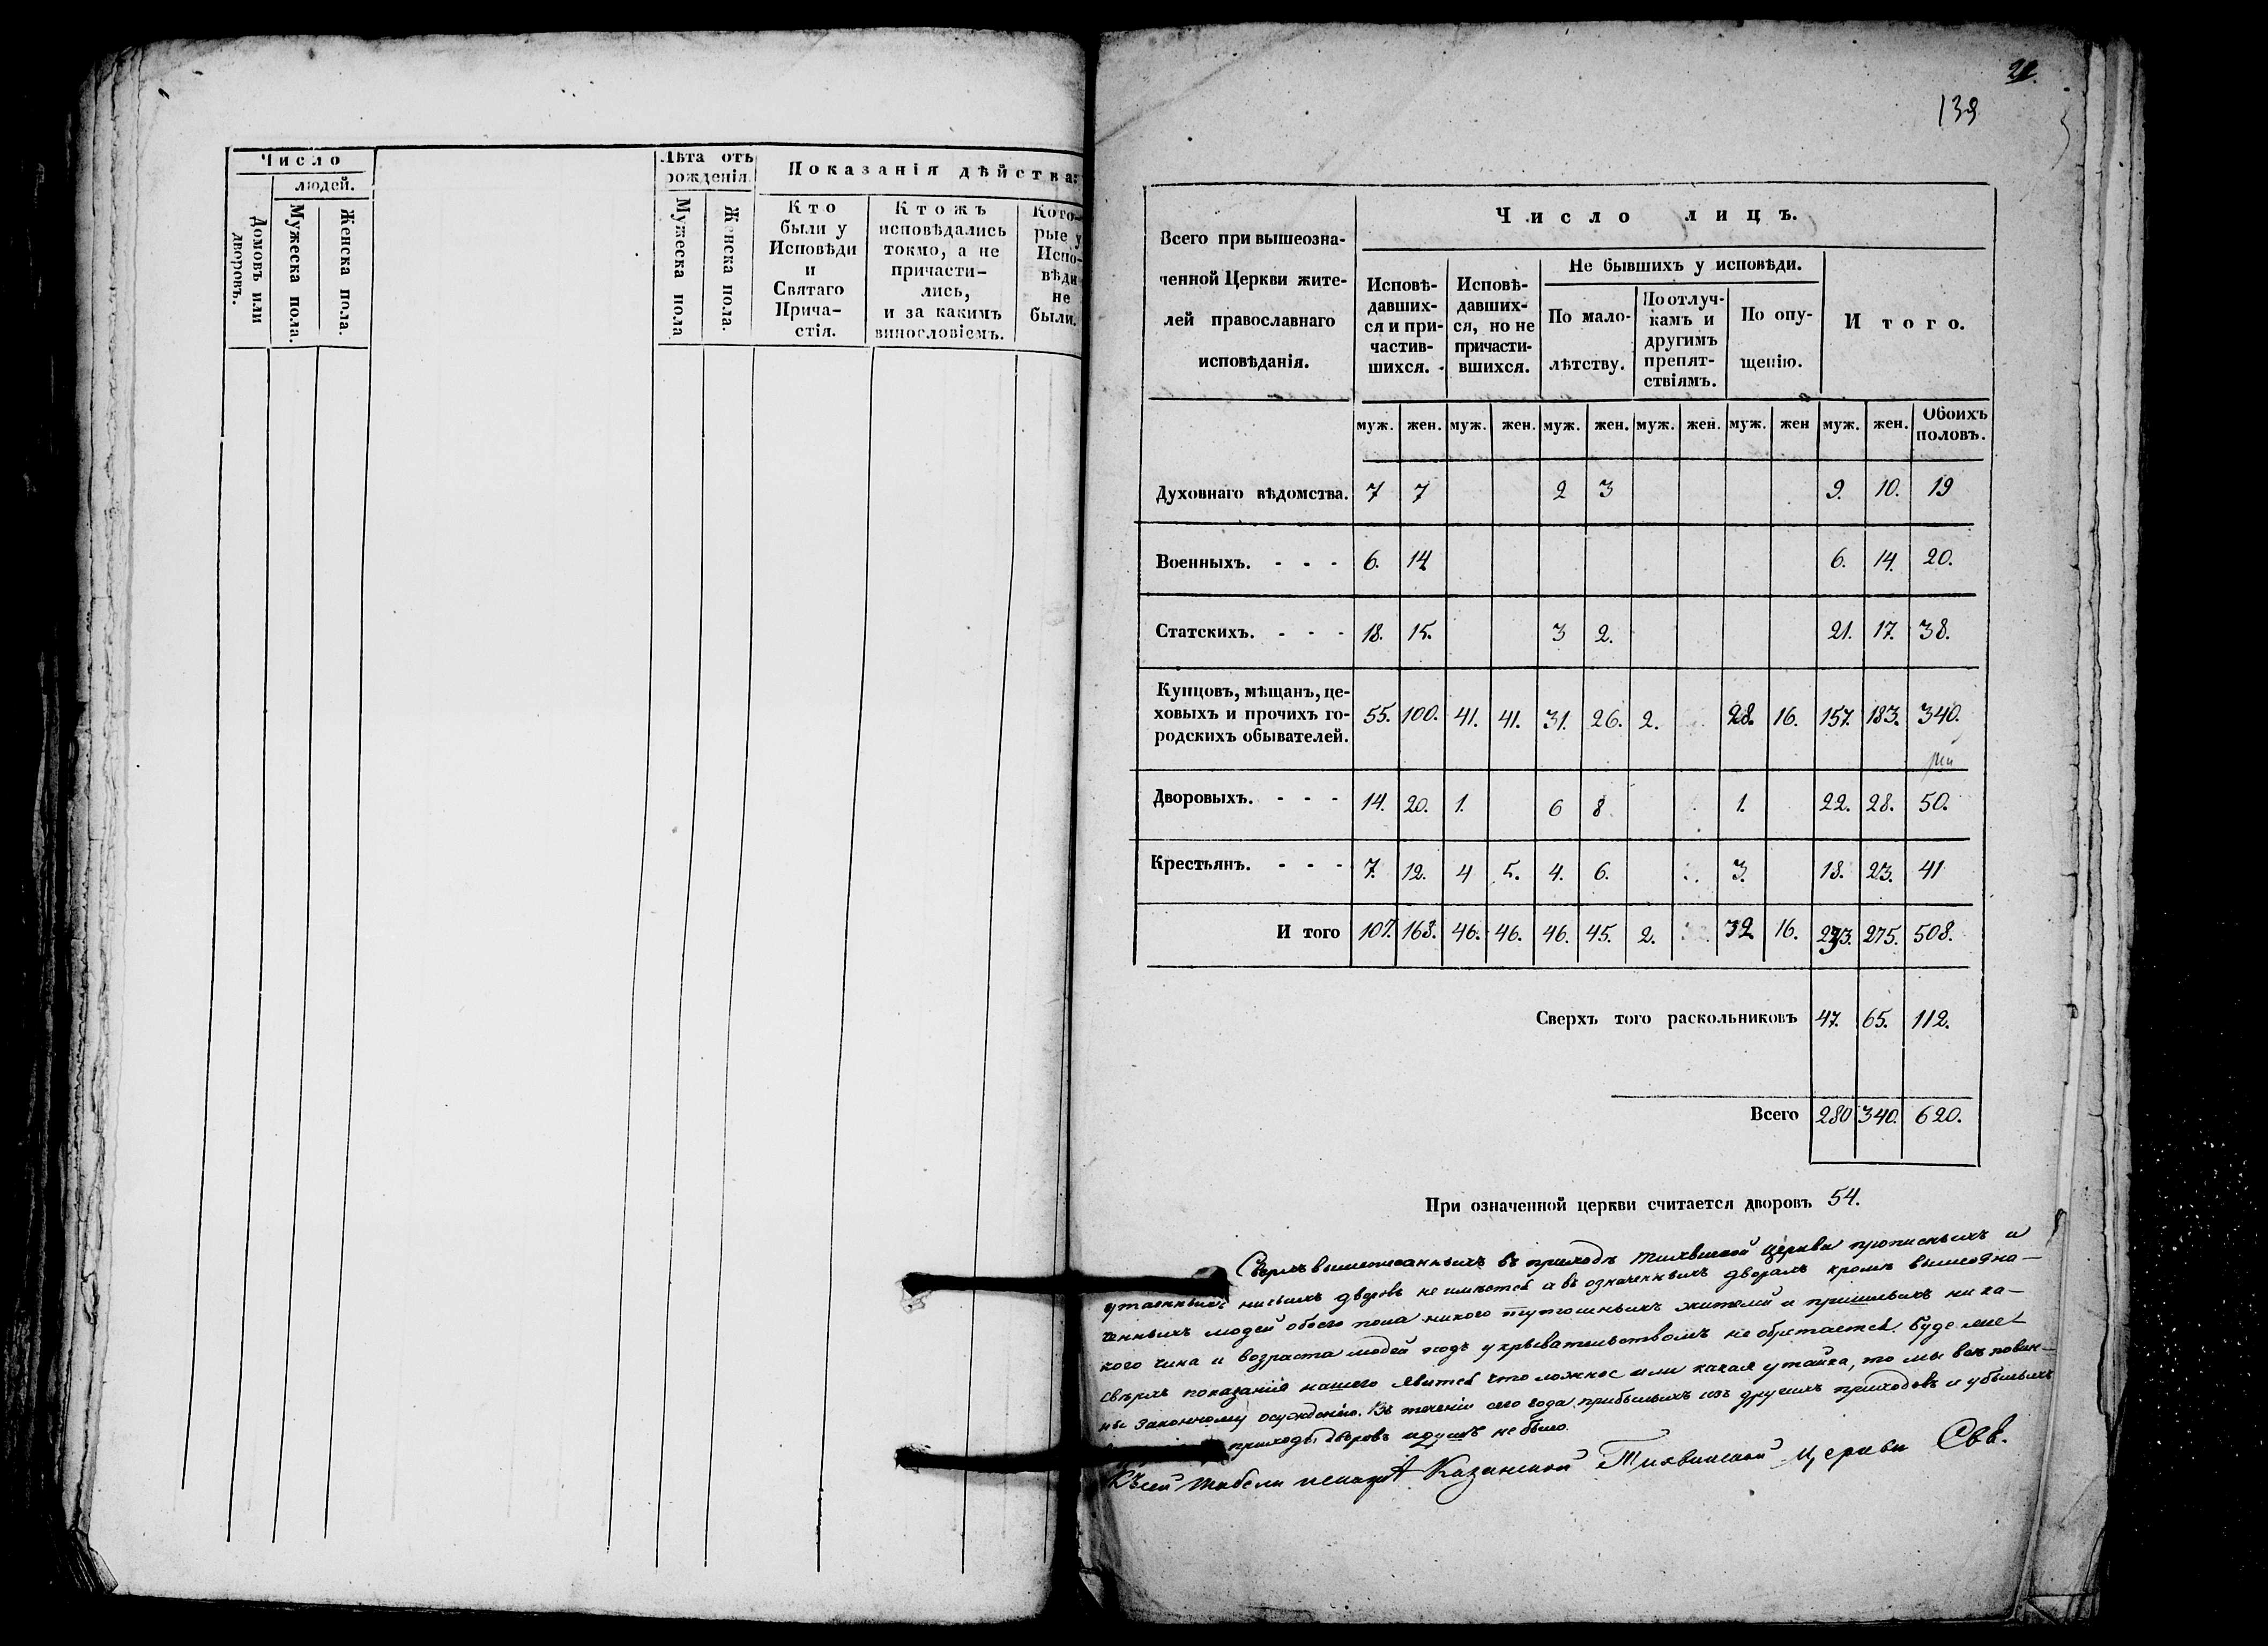 Число
людей.
Домовъ или дворовъ.
Мужеска пола.
Женска пола.
Лѣта отъ
рожденія.
Мужеска пола
Женска пола.
Показанія дѣйства:
Кто
были у
Исповѣди
и
Святаго
Прича-
стія.
Ктожъ
исповѣдались
токмо, а не
причасти-
лись,
и за какимъ
винословіемъ.
Кото-
рые у
Испо-
вѣди
не
были.
139
Всего при вышеозна-
ченной Церкви жите-
лей православнаго
исповѣданія.
Число лицъ.
Исповѣ-
давших-
ся и при-
частив-
шихся.
Исповѣ-
давших-
ся, но не
причасти-
вшихся.
Не бывшихъ у исповѣди.
По мало-
лѣтству.
По отлуч-
камъ и
другимъ
препят-
ствіямъ.
По опу-
щенію.
Итого.
муж. жен. муж. жен. муж. жен. муж. жен. муж. жен муж. жен. Обоихъ половъ.
Духовнаго вѣдомства. 7 7 2 3 9. 10. 19
Военныхъ. - - - 6. 14 6. 14. 20.
Статскихъ. - - - 18. 15. 3 2. 21. 17. 38.
Купцовъ, мѣщанъ, це-
ховыхъ и прочихъ го-
родскихъ обывателей. 55. 100. 41. 41. 31. 26. 2. 28. 16. 157. 183. 340.
Дворовыхъ. - - - 14. 20. 1. 6 8. 1. 22. 28. 50.
Крестьянъ. - - - 7. 12. 4 5. 4. 6. 3. 18. 23. 41
И того 107. 168. 46. 46. 46. 45. 2. 32 16. 233. 275. 508.
Сверхъ того раскольниковъ 47. 65. 112.
Всего 280 340. 620.
При означенной церкви считается дворовъ 54.
Сверхъ вышеписанныхъ въ приходѣ Тихвинской Церкви прописныхъ и
утаенныхъ никакихъ дворовъ не имѣется и въ означенныхъ дворахъ кромѣ вышеозна-
ченныхъ людей обоего пола никого тутошныхъ жителей и пришлыхъ ника-
кого чина и возраста людей подъ укрывательствомъ не обретается. Буде же
сверхъ показанія нашего явится что ложное или какая утайка, то мы всѣ повин-
ны законному осужденію. Въ теченіи сего года прибылыхъ изъ другихъ приходовъ и убылыхъ
приходы дворовъ и душъ не было.
Къ сей табели Казанской Тихвинской Церкви Свя.